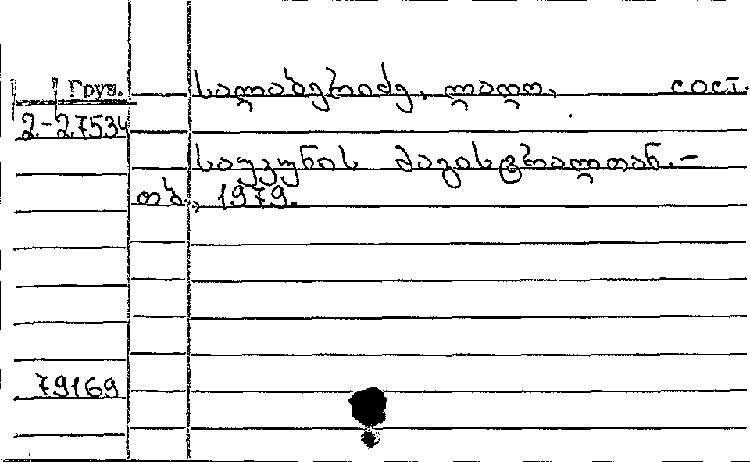 Груз. სალაბერიძე, ლადო, сост.
2-27534
საუკუნის მაგისტრალთან.-
თბ., 1979.
79169